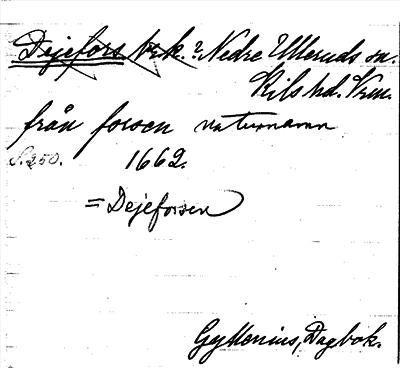 Dejefors brk. i Nedre Ulleruds sn.
Kils hd. Vrm.
från forsen naturnamn
S. 250. 1662.
= Dejeforsen
Gyllenius, Dagbok.